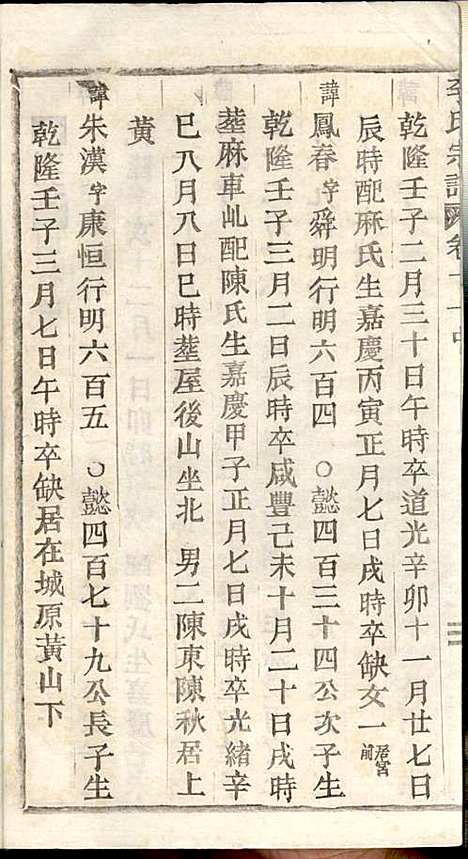 李氏宗譜 卷十一中
乾隆壬子二月三十日午時卒道光辛卯十一月廿七日
辰時配麻氏生嘉慶丙寅正月七日戌時卒缺女一居宮前
諱鳳春字舜明行明六百四 ○懿四百三十四公次子生
乾隆壬子三月二日辰時卒咸豐己未十月二十日戌時
塟麻車乢配陳氏生嘉慶甲子正月七日戌時卒光緒辛
巳八月八日巳時塟屋後山坐北 男二陳東陳秋居上
黃
諱朱漢字康恒行明六百五 ○懿四百七十九公長子生
乾隆壬子三月七日午時卒缺居在城原黃山下